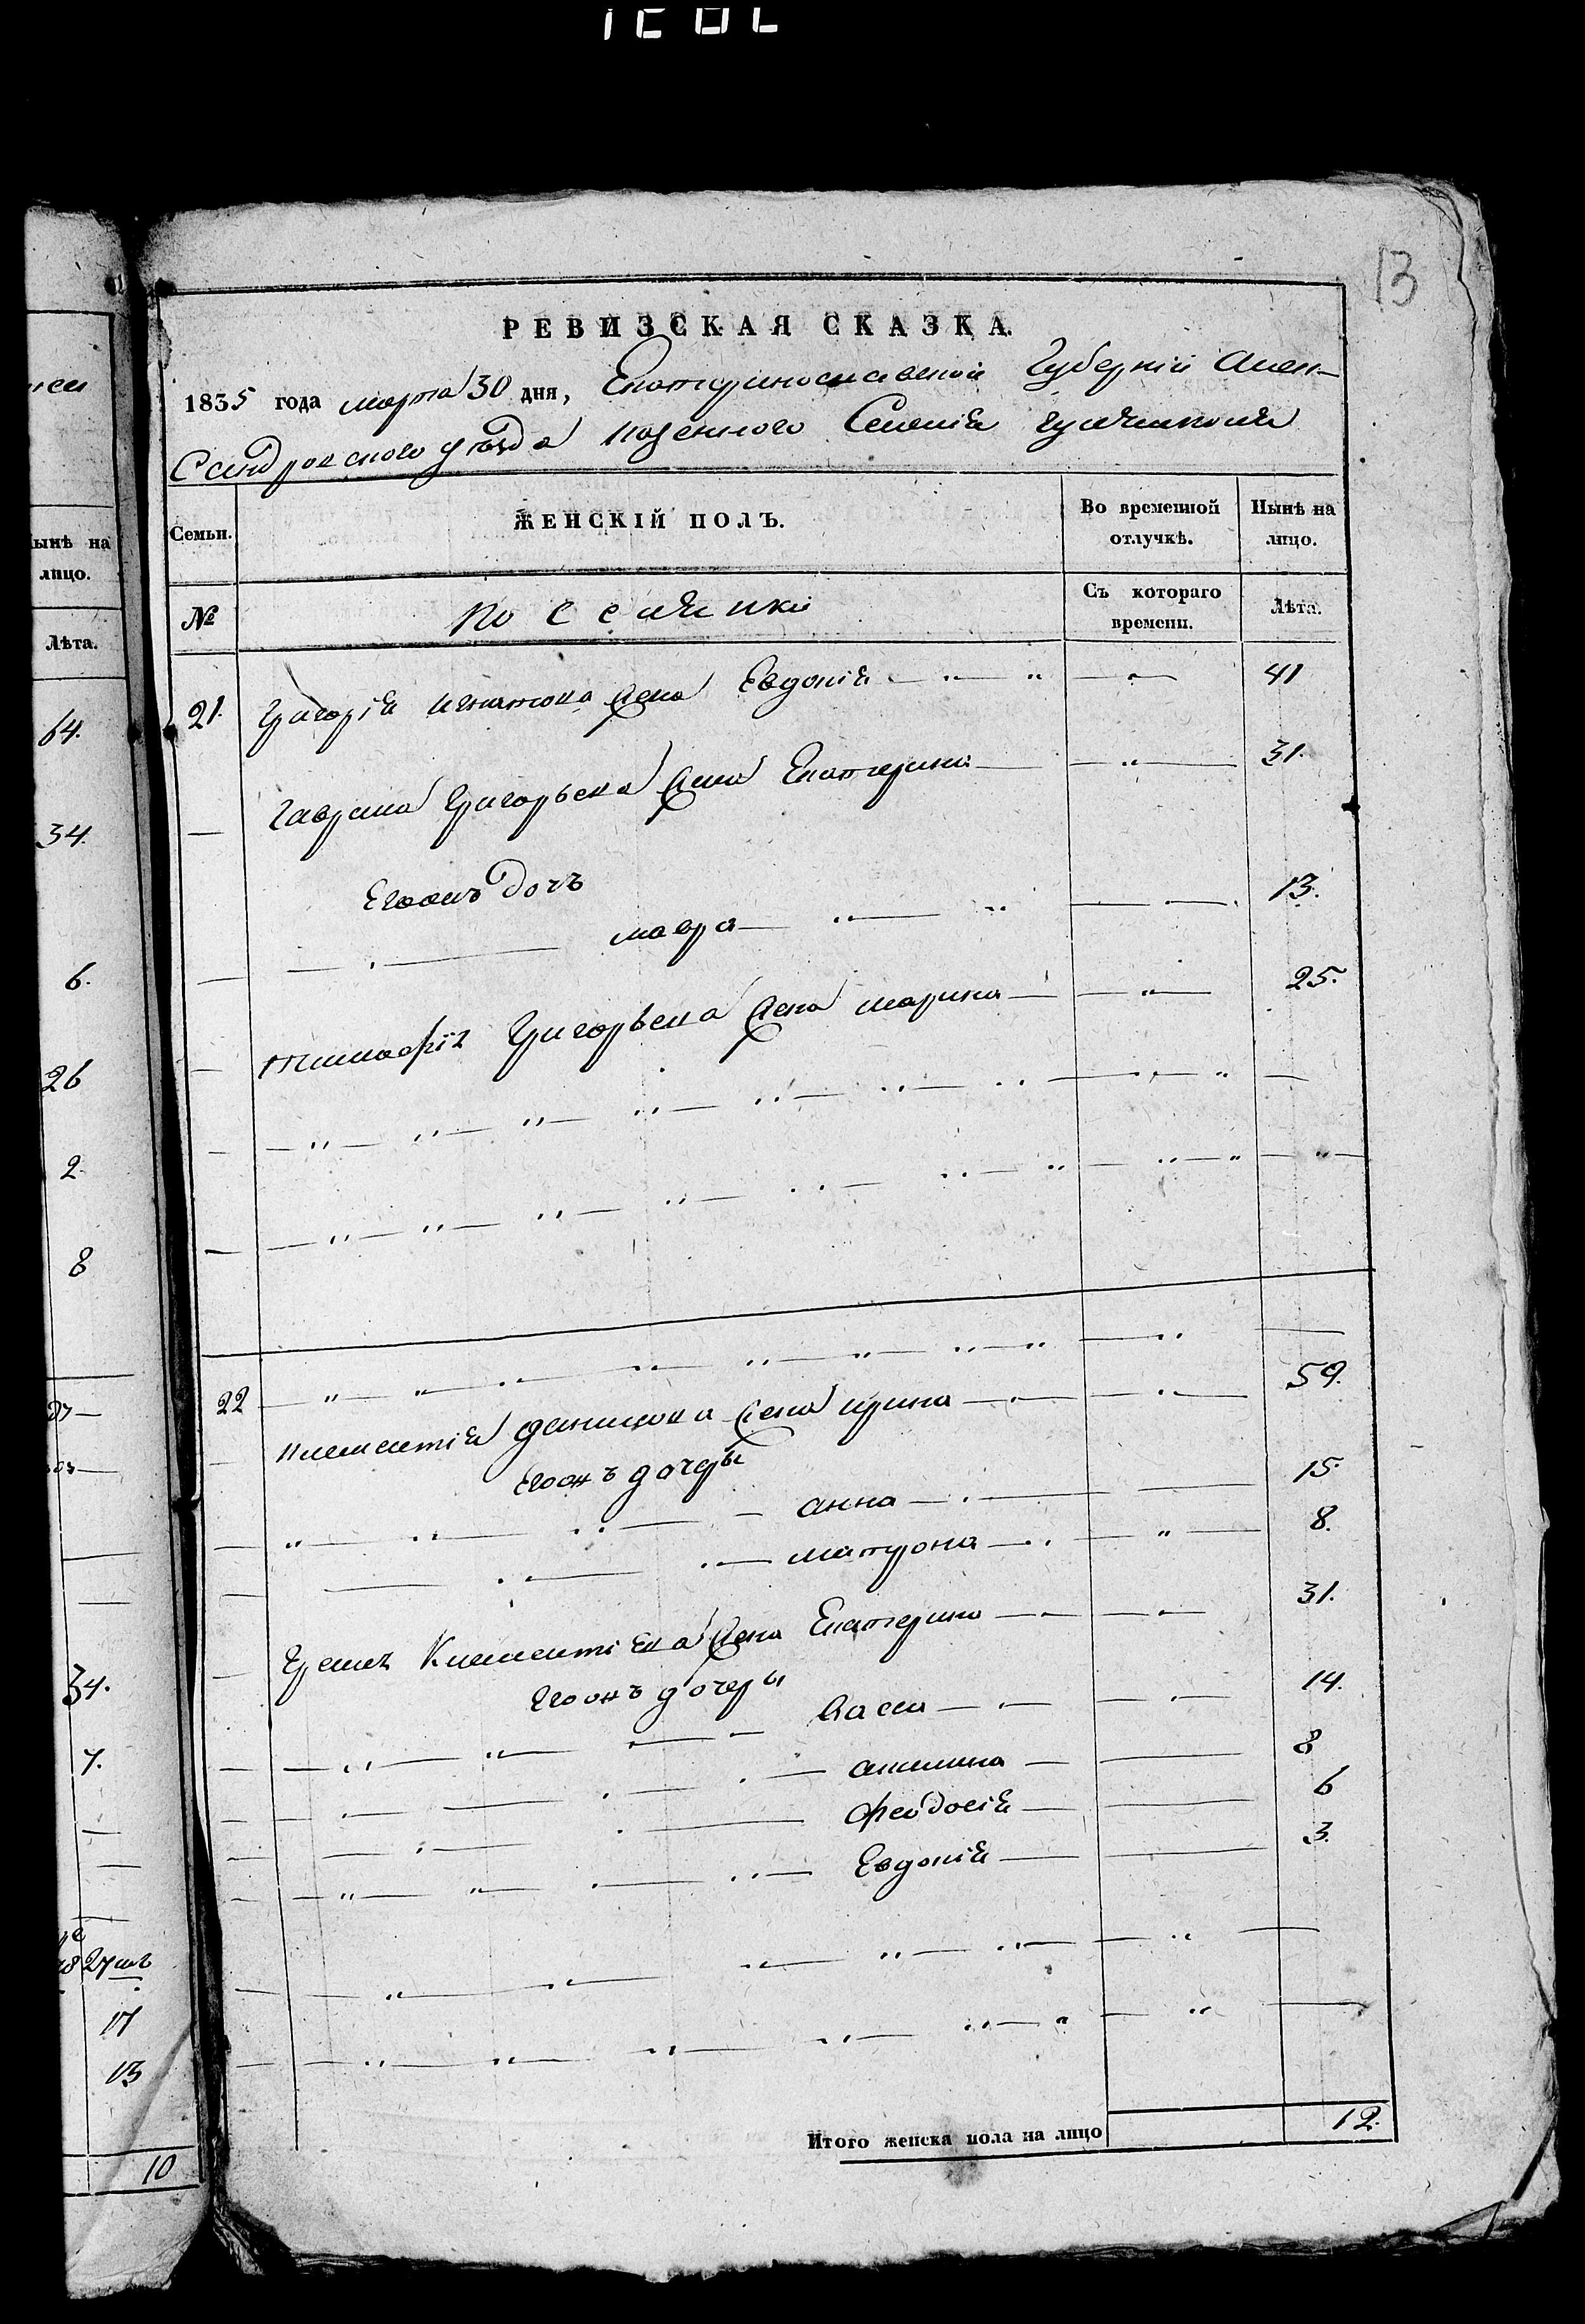 13
РЕВИЗСКАЯ СКАЗКА.
1835 года марта 30 дня, Екатеринославской Губерніи Алек-
Сандровского уѣзда казенного Селенія
Семьи. ЖЕНСКІЙ ПОЛЪ. Во временной отлучкѣ. Нынѣ на лицо.
№ Съ котораго времени. Лѣта.
21. Григорія Игнатова жена Евдокія 41
Гаврила Григорьева жена Екатерина 31.
Егоонъ дочъ
мавра 13.
тимофѣя Григорьева жена марина 25.
22
Климентія данилова жена ирина 59.
Егоонъ дочеры
анна 15.
матрона 8.
Климентіева жена Екатерина 31.
Егоонъ дочеры
Васса 14.
акилина 8
феодосія 6
Евдокія 3.
Итого женска пола на лицо 12.
ынѣ на
лицо.
Лѣта.
64.
34.
6.
26
2.
8
34.
7.
17
13
10